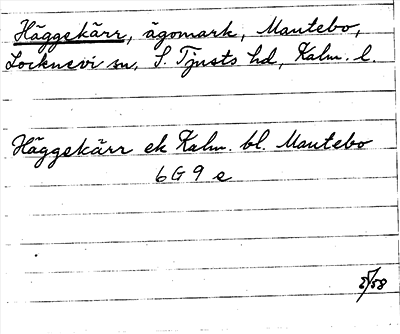 Häggekärr, ägomark, Mantebo,
Locknevi sn, S. Tjusts hd, Kalm. l.
Häggekärr ek Kalm. bl. Mantebo
6G9e